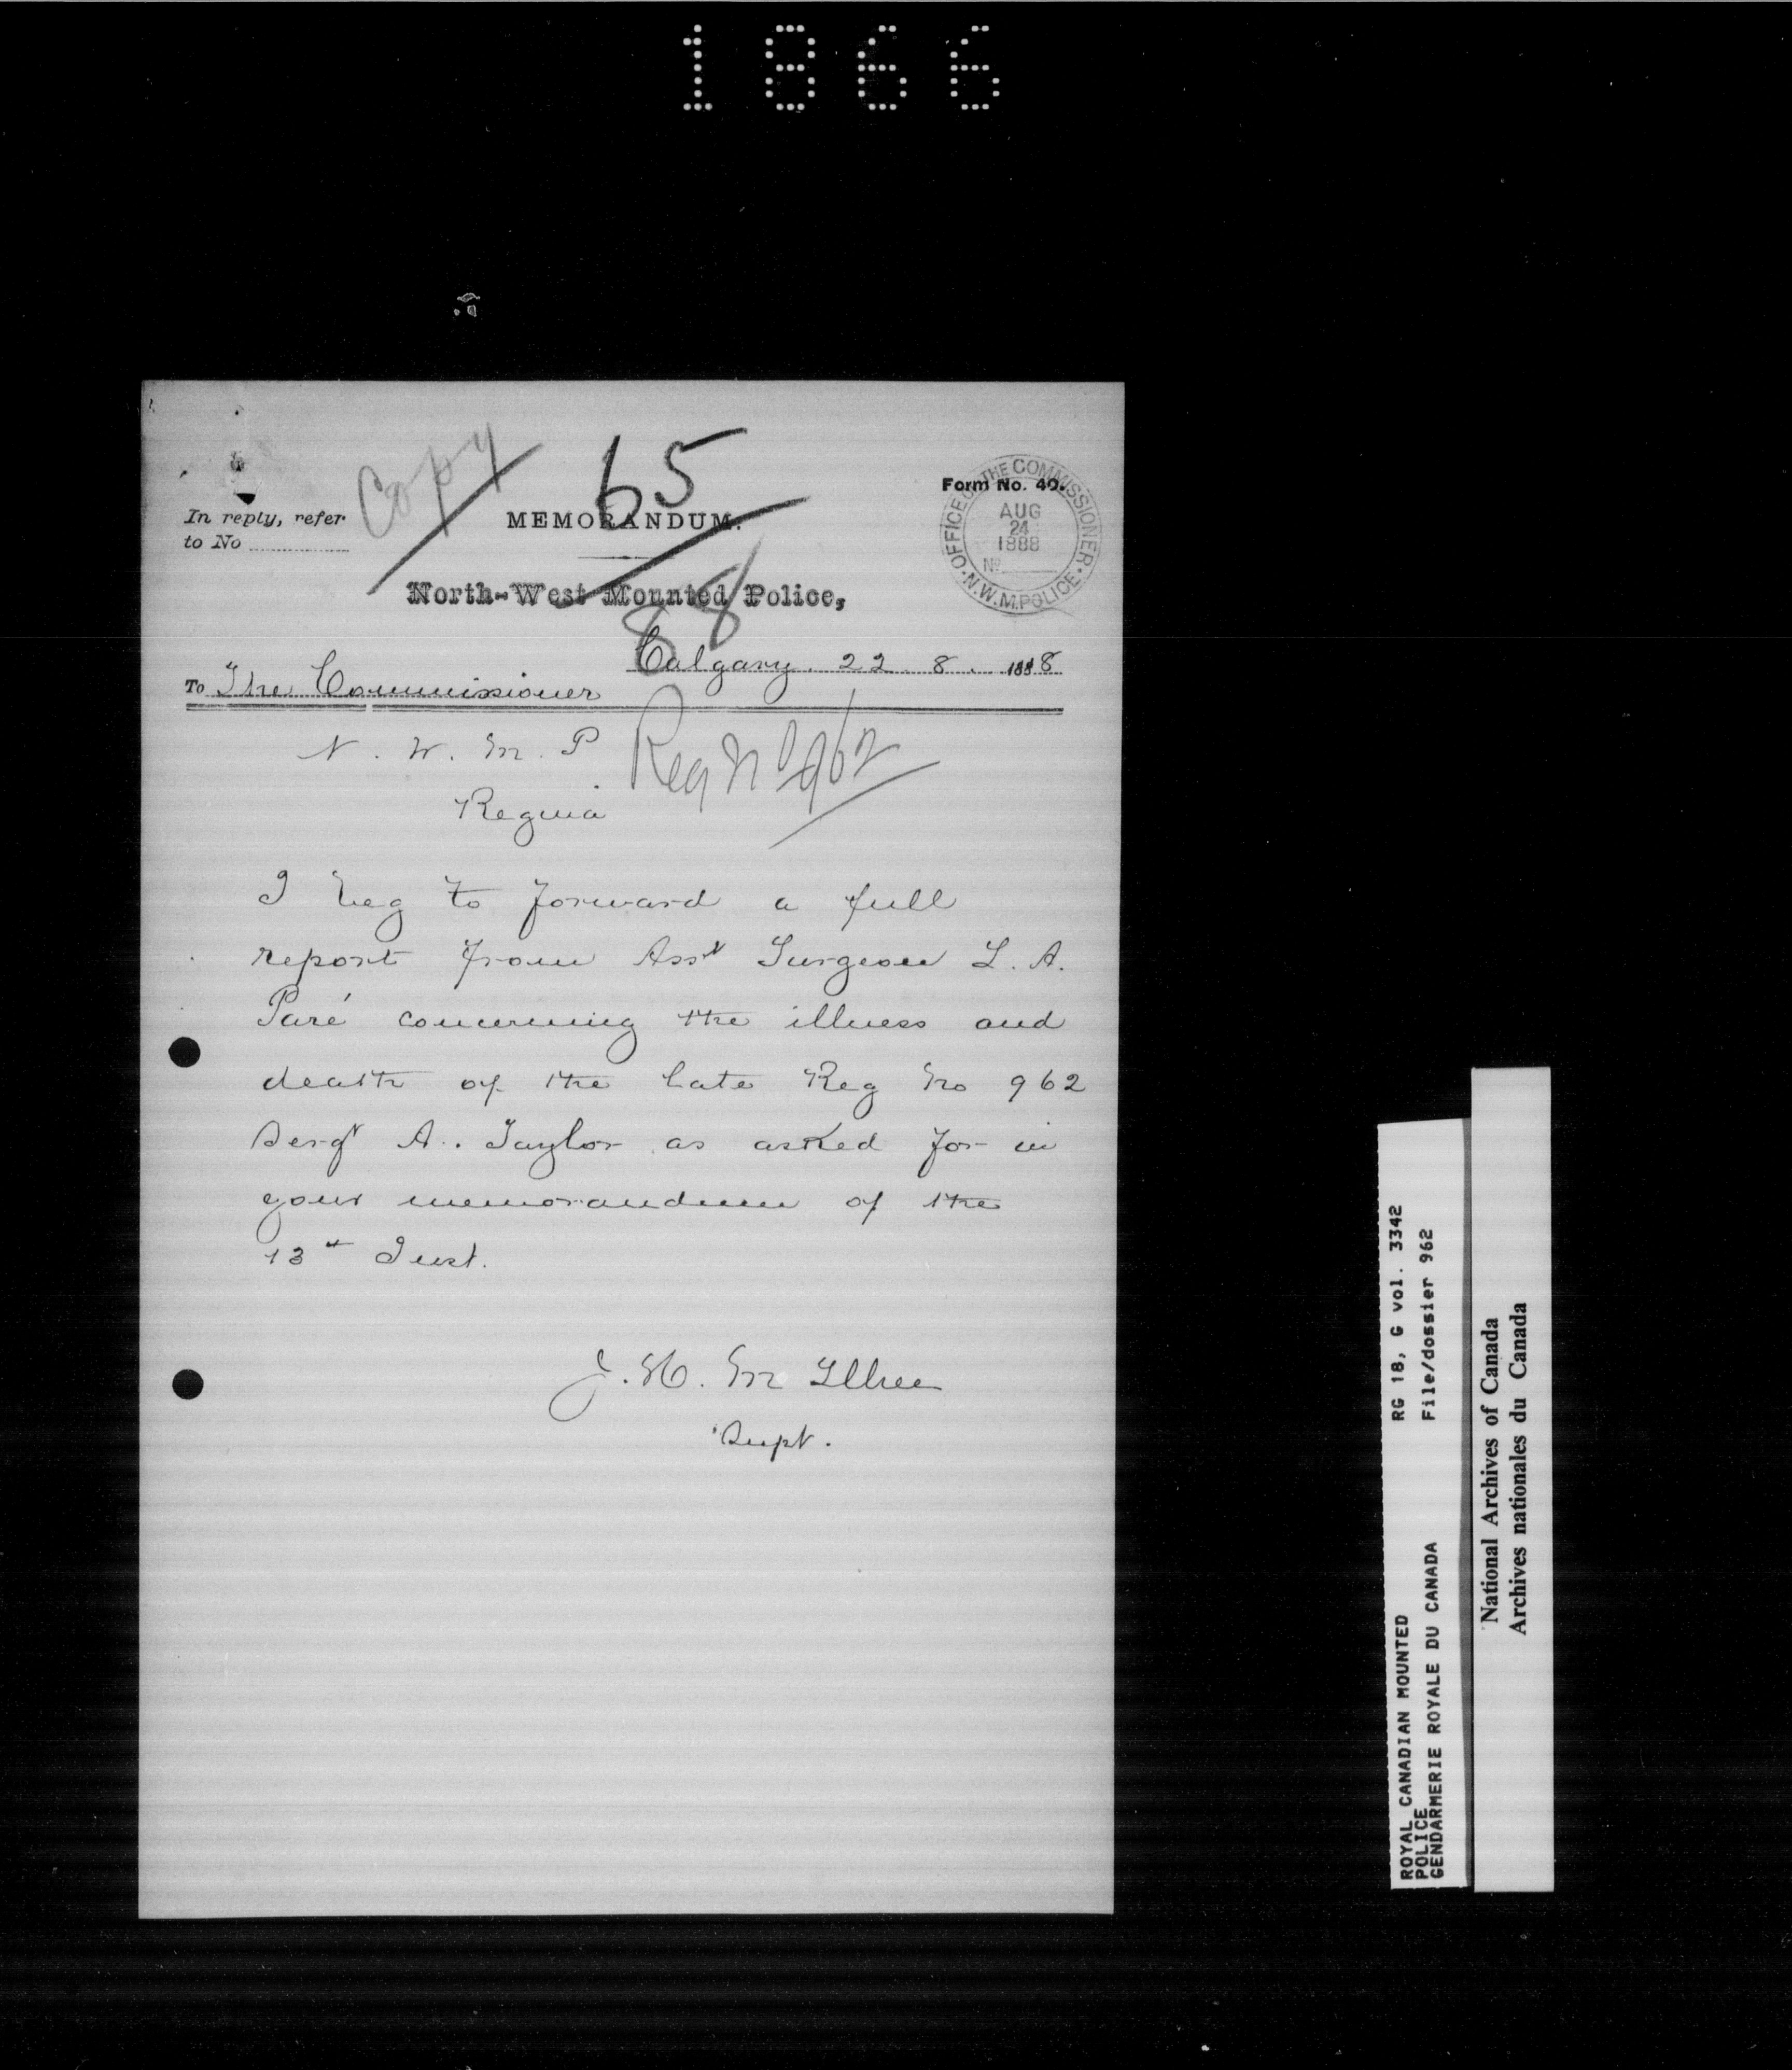 1866
Copy
65
88
Form No. 40.
OFFICE OF THE COMMISSIONER
AUG
24
1888
No
N.W.M.POLICE
In reply, refer
to No
MEMORANDUM.
North-West Mounted Police,
Calgary. 22. 8. 1888
To The Commissioner
N. W. M. P
Regina
Reg No 962
I beg to forward a full
report from Asst Surgeon L. A.
Paré concerning the illness and
death of the late Reg No 962
Sergt A. Taylor as asked for in
your memorandum of the
13th Inst.
J. H. McIllree
Supt.
ROYAL CANADIAN MOUNTED
POLICE
GENDARMERIE ROYALE DU CANADA
RG 18, G vol. 3342
File/dossier 962
National Archives of Canada
Archives nationales du Canada